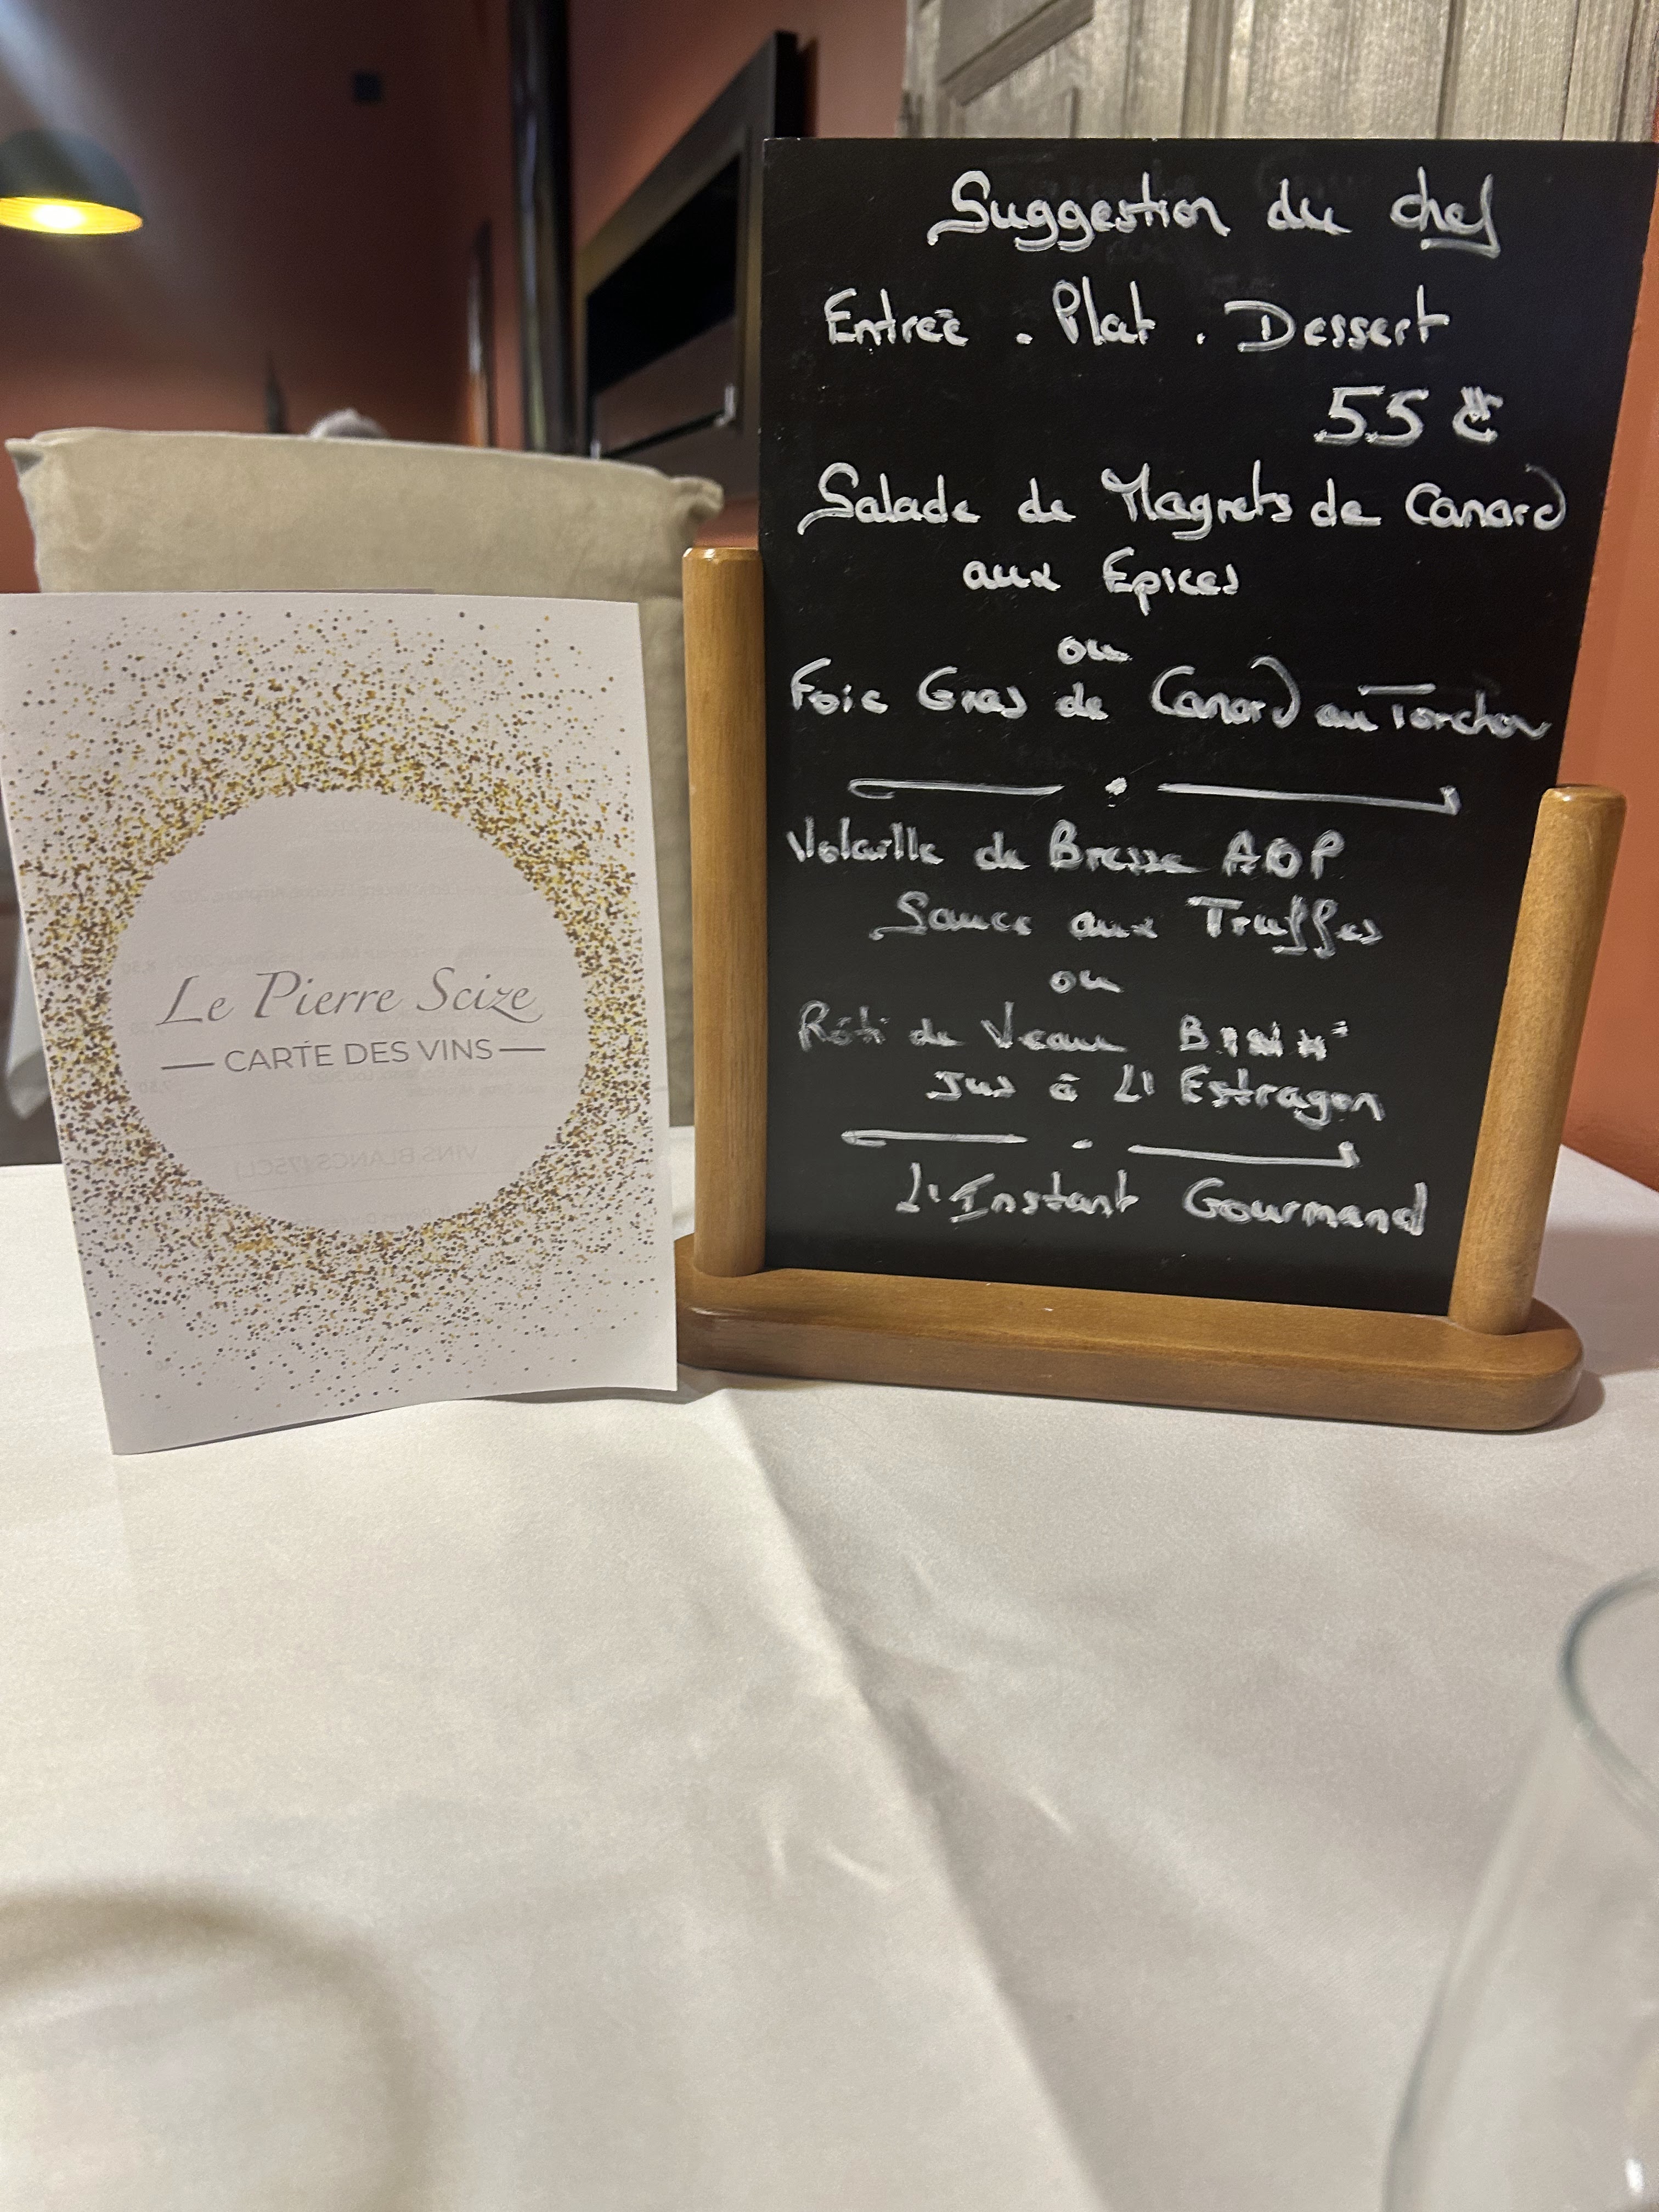 Suggestion du chef
Entreé . Plat . Dessert
55 €
Salade de Magrets de Canard
aux Epices
ou
Foie Gras de Canard au Torchon
Volaille de Bresse AOP
Sauce aux Truffes
ou
Rôti de Veau
Jus à L'Estragon
L'Instant Gourmand
Le Pierre Scize
CARTE DES VINS
VINS BLANCS (75CL)